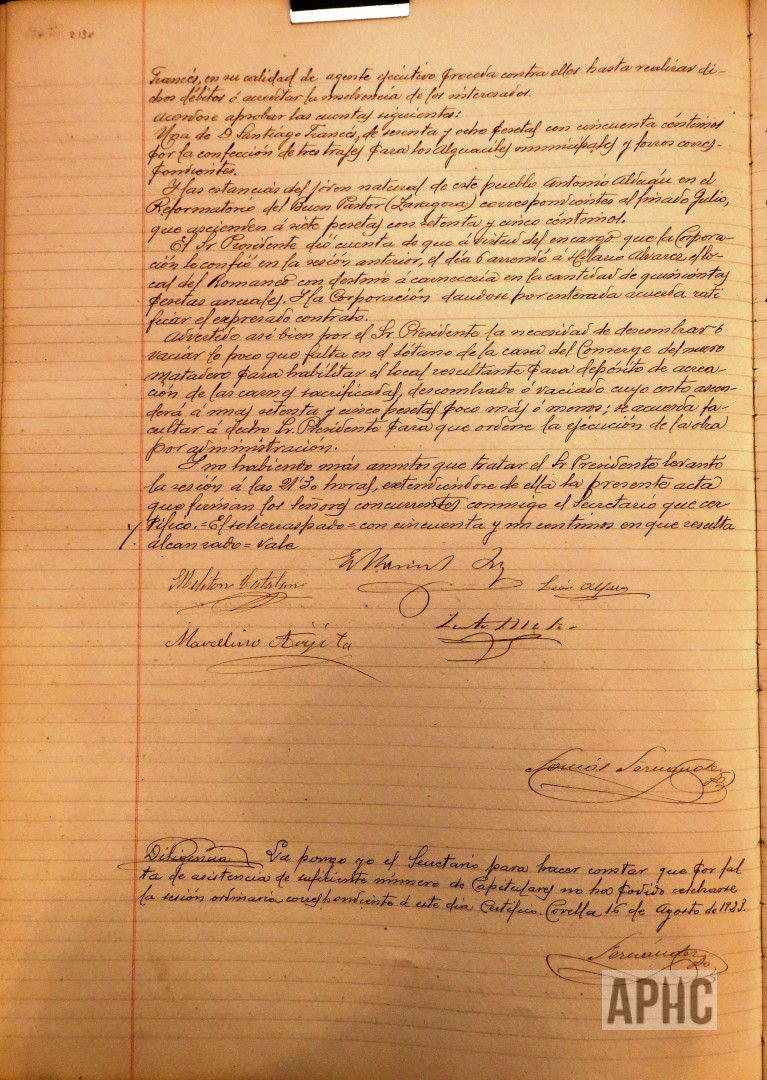 213v
Francés, en su calidad de agente ejecutivo proceda contra ellos hasta realizar di-
chos débitos ó acreditar la insolvencia de los interesados.
Acordose aprobar las cuentas siguientes:
Una de D. Santiago Francés, de sesenta y ocho pesetas con cincuenta céntimos
por la confección de tres trajes para los Alguaciles municipales y forros corres-
pondientes.
Y las estancias del joven natural de este pueblo Antonio en el
Reformatorio del Buen Pastor (Zaragoza) correspondientes al finado Julio,
que ascienden á siete pesetas con setenta y cinco céntimos.
El Sr Presidente dió cuenta de que á virtud del encargo que la Corpora-
ción le confió en la sesión anterior, el día 6 arrendó á Hilario Alvarez, el lo-
cal del Romaneo con destino á carnecería en la cantidad de quinientas
pesetas anuales. Y la Corporación dandose por enterada acuerda rati-
ficar el expresado contrato.
Advertido asi bien por el Sr Presidente la necesidad de descombrar ó
vaciar lo poco que falta en el sótano de la casa del Conserge del nuevo
matadero para habilitar el local resultante para depósito de aerea-
ción de las carnes sacrificadas, descombrado ó vaciado cuyo costo ascen-
derá á unas setenta y cinco pesetas poco más ó menos; se acuerda fa-
cultar á dicho Sr. Presidente para que ordene la ejecución de la obra
por administración.
Y no habiendo más asuntos que tratar el Sr Presidente levantó
la sesión á las 21'30 horas, extendiéndose de ella la presente acta
que firman los señores concurrentes conmigo el Secretario que cer-
tifico.=El sobrerraspado=con cincuenta y un centimos en que resulta
alcanzado=Vale
León Alfaro
Marcelino Arigita
Tomás Fernández
Diligencia La pongo yo el Secretario para hacer constar que por fal
ta de asistencia de suficiente número de Capitulares no ha podido celebrarse
la sesión ordinaria correspondiente á este día. Certifico. Corella 16 de Agosto de 1923.
Fernández
APHC